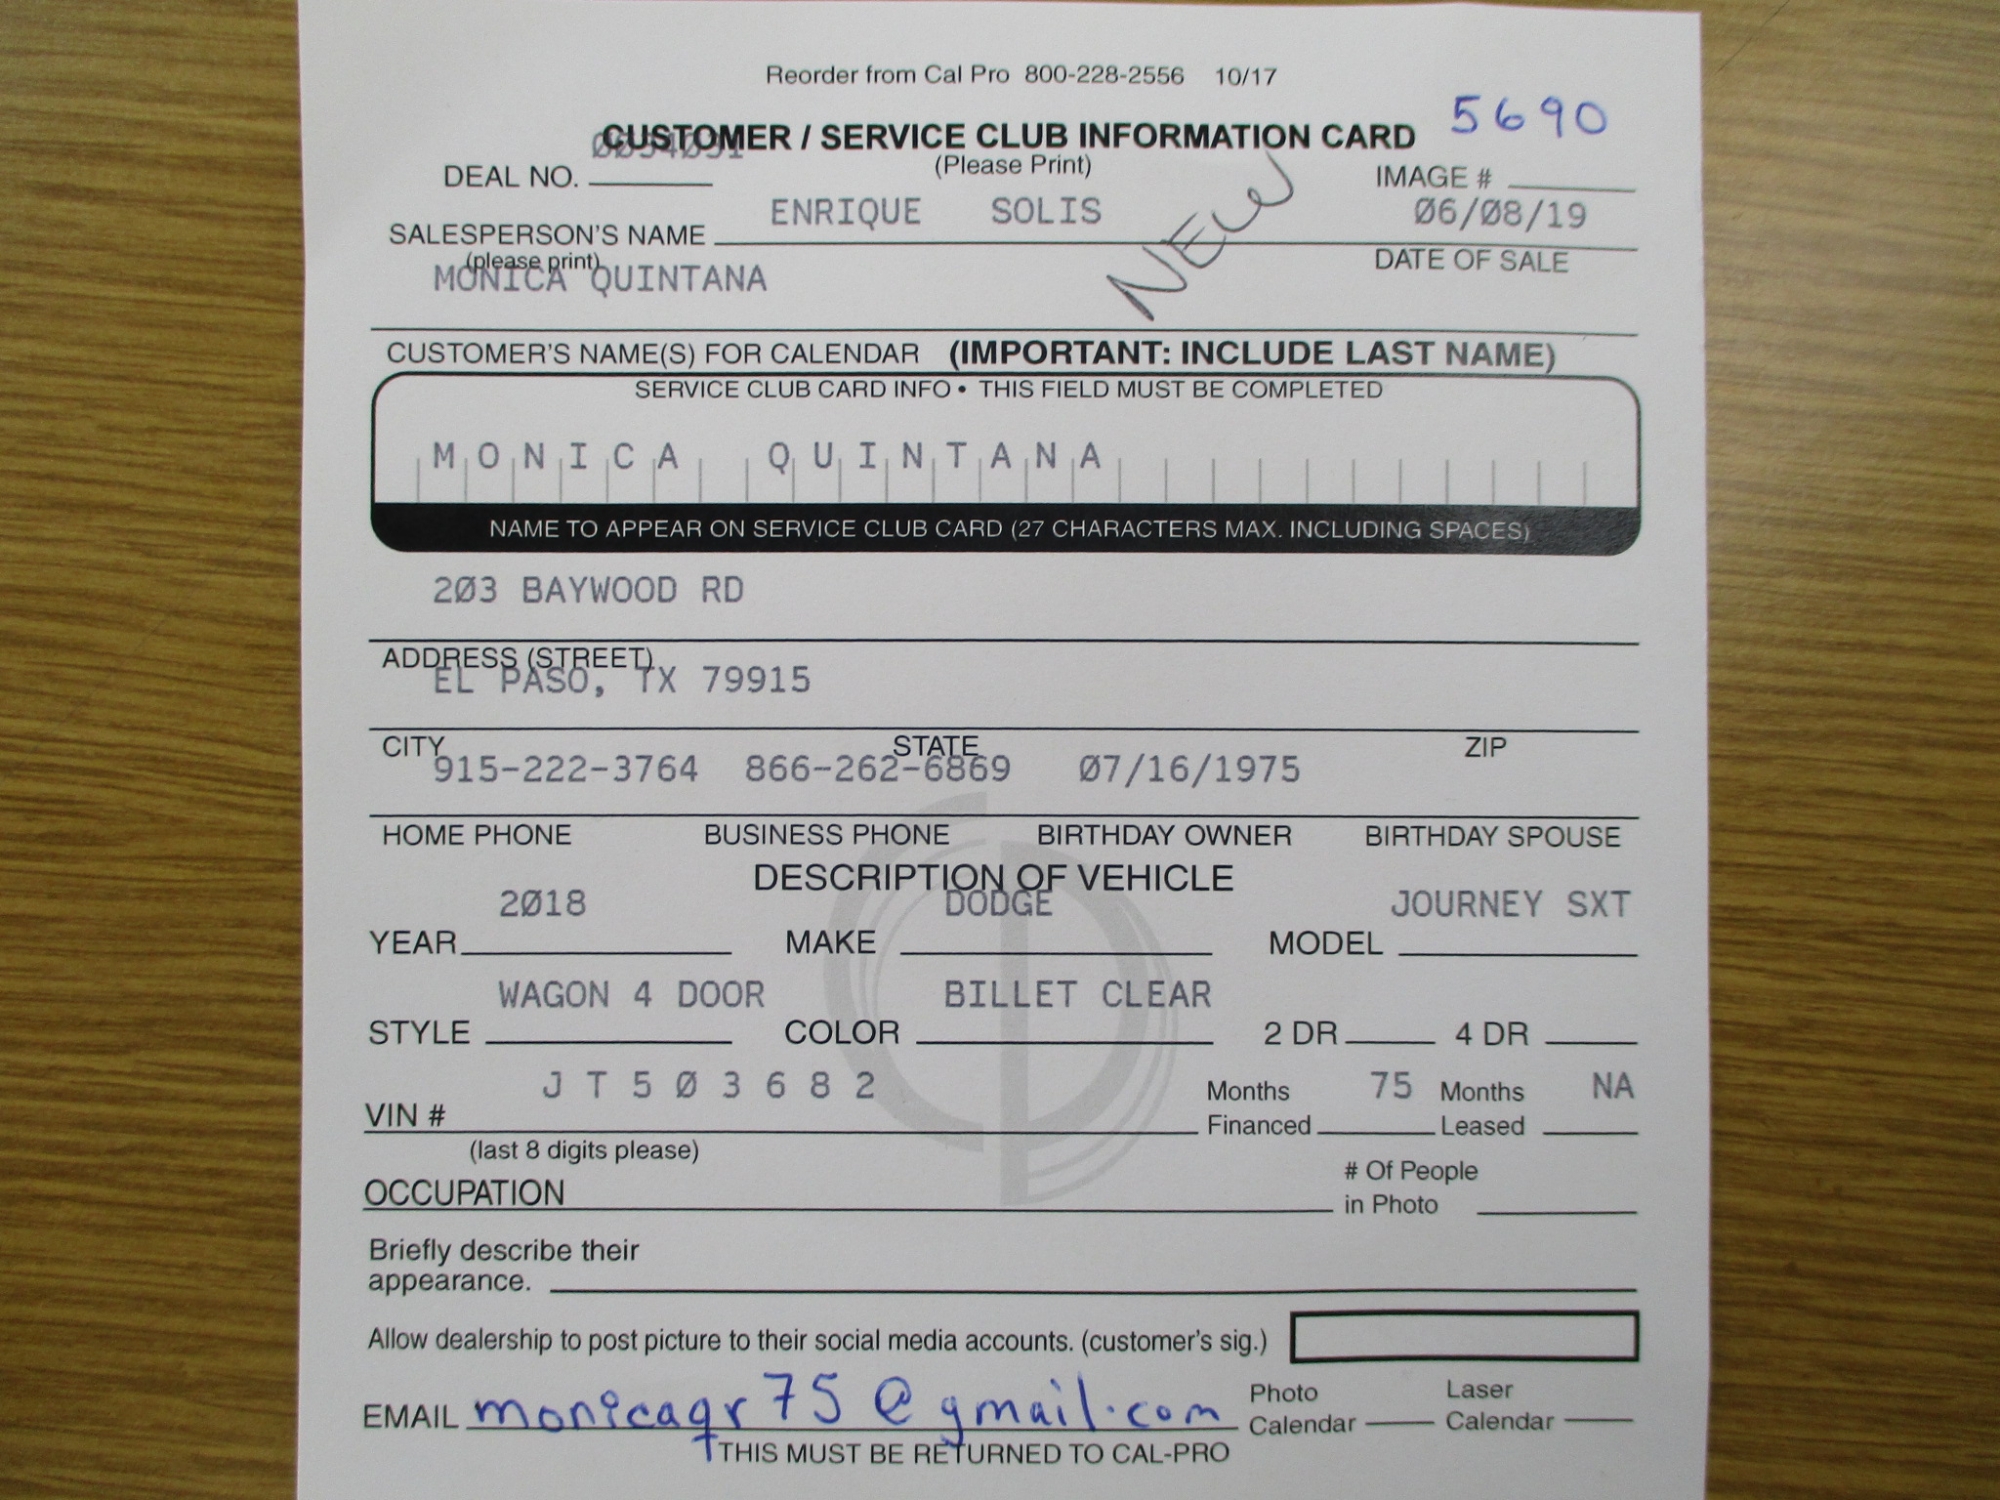 Reorder from Cal Pro 800-228-2556 10/17
5690
CUSTOMER / SERVICE CLUB INFORMATION CARD
(Please Print)
DEAL NO.
IMAGE #
NEW
ENRIQUE SOLIS
06/08/19
SALESPERSON'S NAME
(please print)
DATE OF SALE
MONICA QUINTANA
CUSTOMER'S NAME(S) FOR CALENDAR (IMPORTANT: INCLUDE LAST NAME)
SERVICE CLUB CARD INFO • THIS FIELD MUST BE COMPLETED
MONICA QUINTANA
NAME TO APPEAR ON SERVICE CLUB CARD (27 CHARACTERS MAX. INCLUDING SPACES)
203 BAYWOOD RD
ADDRESS (STREET)
EL PASO, TX 79915
CITY STATE ZIP
915-222-3764 866-262-6869 07/16/1975
HOME PHONE BUSINESS PHONE BIRTHDAY OWNER BIRTHDAY SPOUSE
DESCRIPTION OF VEHICLE
2018 DODGE JOURNEY SXT
YEAR MAKE MODEL
WAGON 4 DOOR BILLET CLEAR
STYLE COLOR 2 DR 4 DR
JT503682 Months 75 Months NA
VIN # Financed Leased
(last 8 digits please)
# Of People
OCCUPATION in Photo
Briefly describe their
appearance.
Allow dealership to post picture to their social media accounts. (customer's sig.)
EMAIL monicaqr75@gmail.com
Photo Calendar Laser Calendar
THIS MUST BE RETURNED TO CAL-PRO